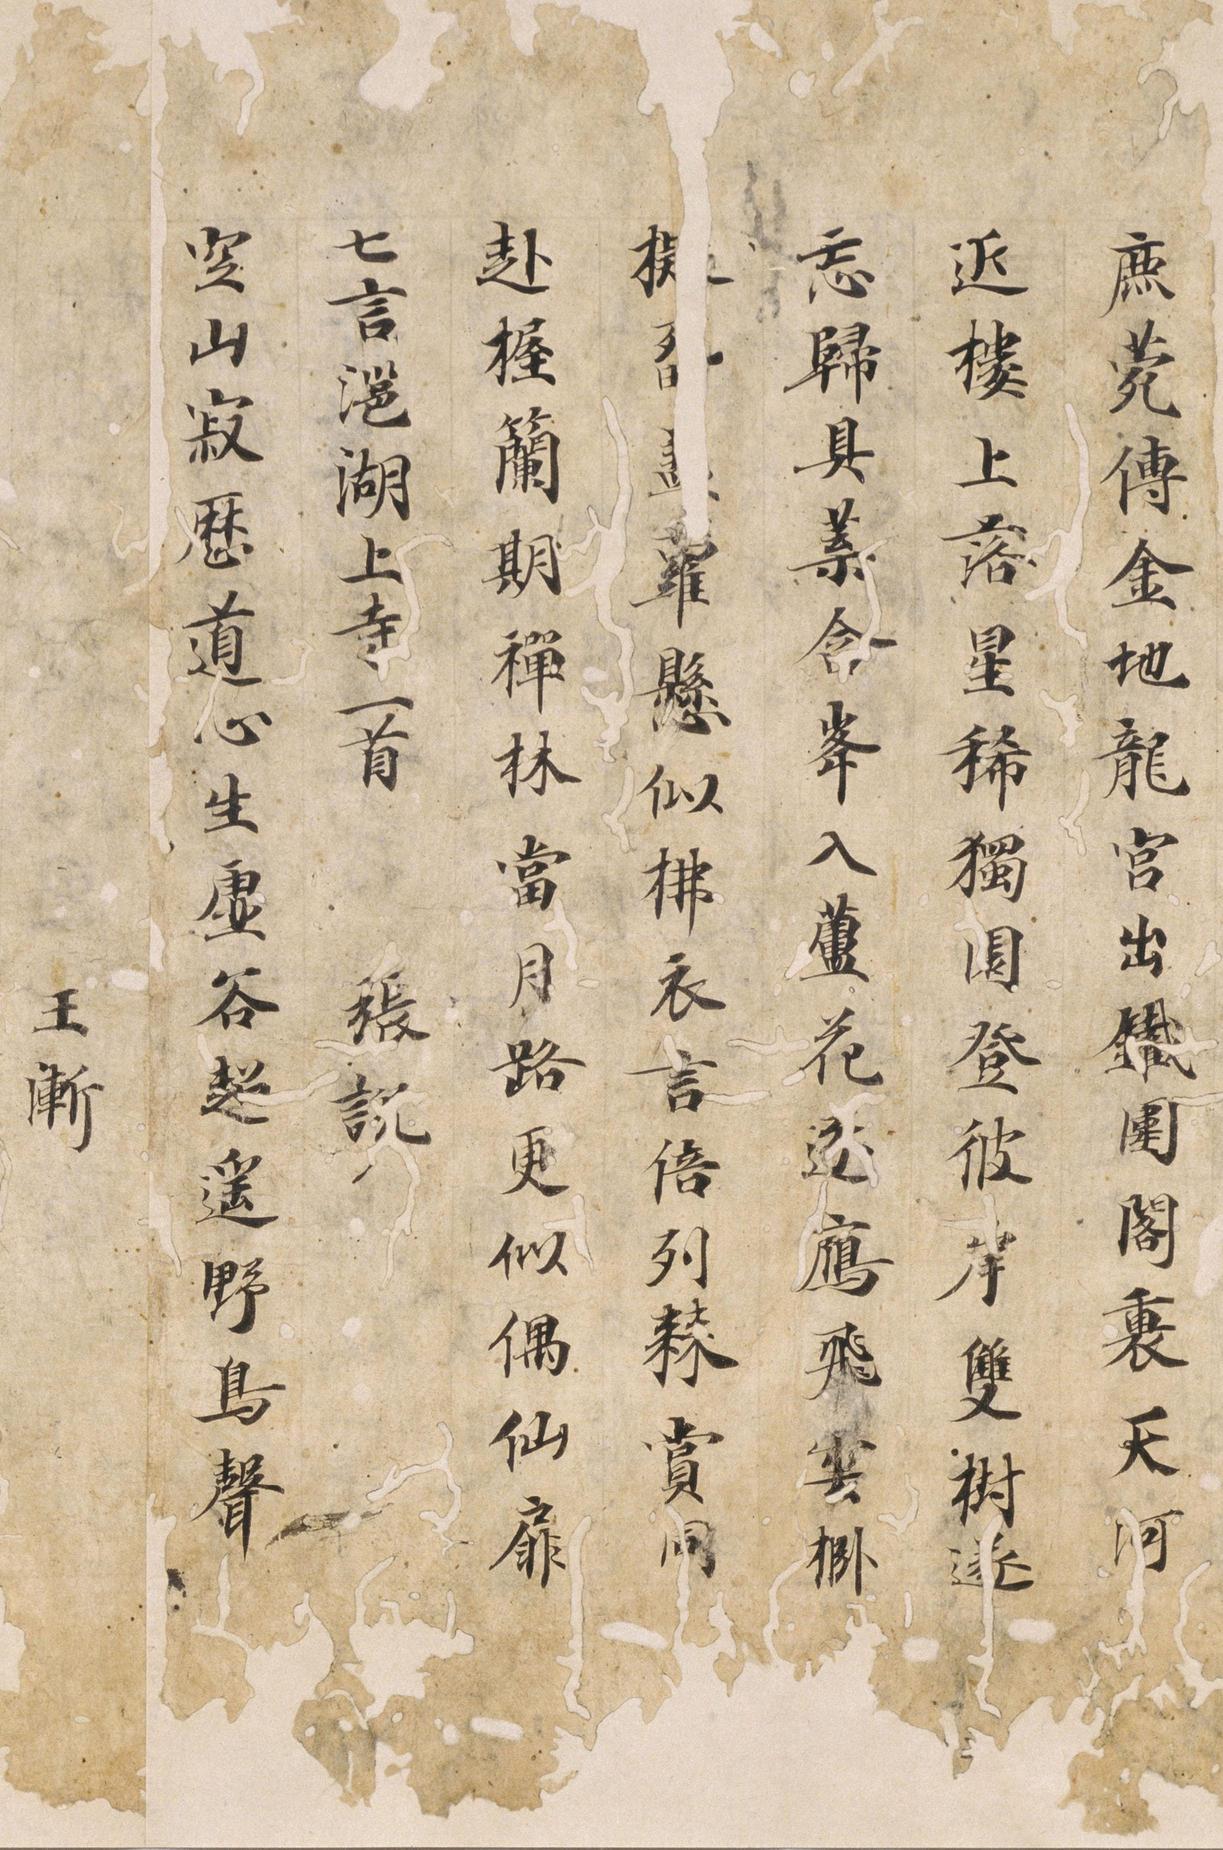 庶菀傳金地龍宮出鐵圍閣裏天河
近樓上落星稀獨園登彼岸雙樹遂
忘歸具葉含峯入蘆花逐鴈飛雲
羅懸似拂衣言倍列棘賞同
赴握蘭期禪林當月路更似偶仙扉
七言㴩湖上寺一首 張說
空山寂歷道心生虛谷超遥野鳥聲
王漸